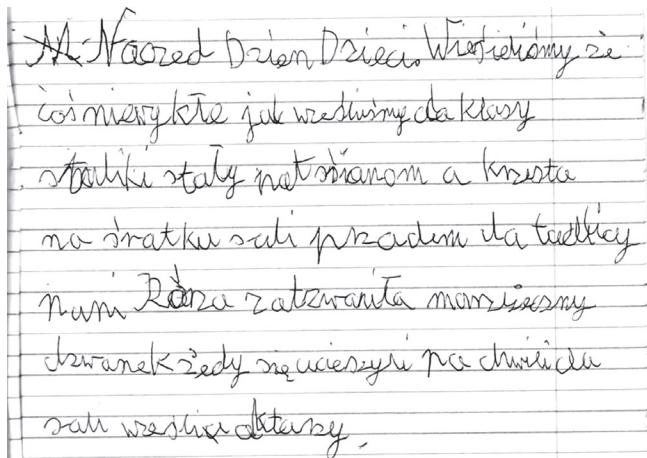 Naored Dzien Dzieci. Wiefieliśmy że
coś niewykłe jak wreśliśmy da klasy
stoliki stały pot śianom a krzesta
na śratku sali przadem da tadlicy
pani Róża zatzwaniła
dzwanek żedy się ucieszyli po chwili da
sali wreśli aktaszy.